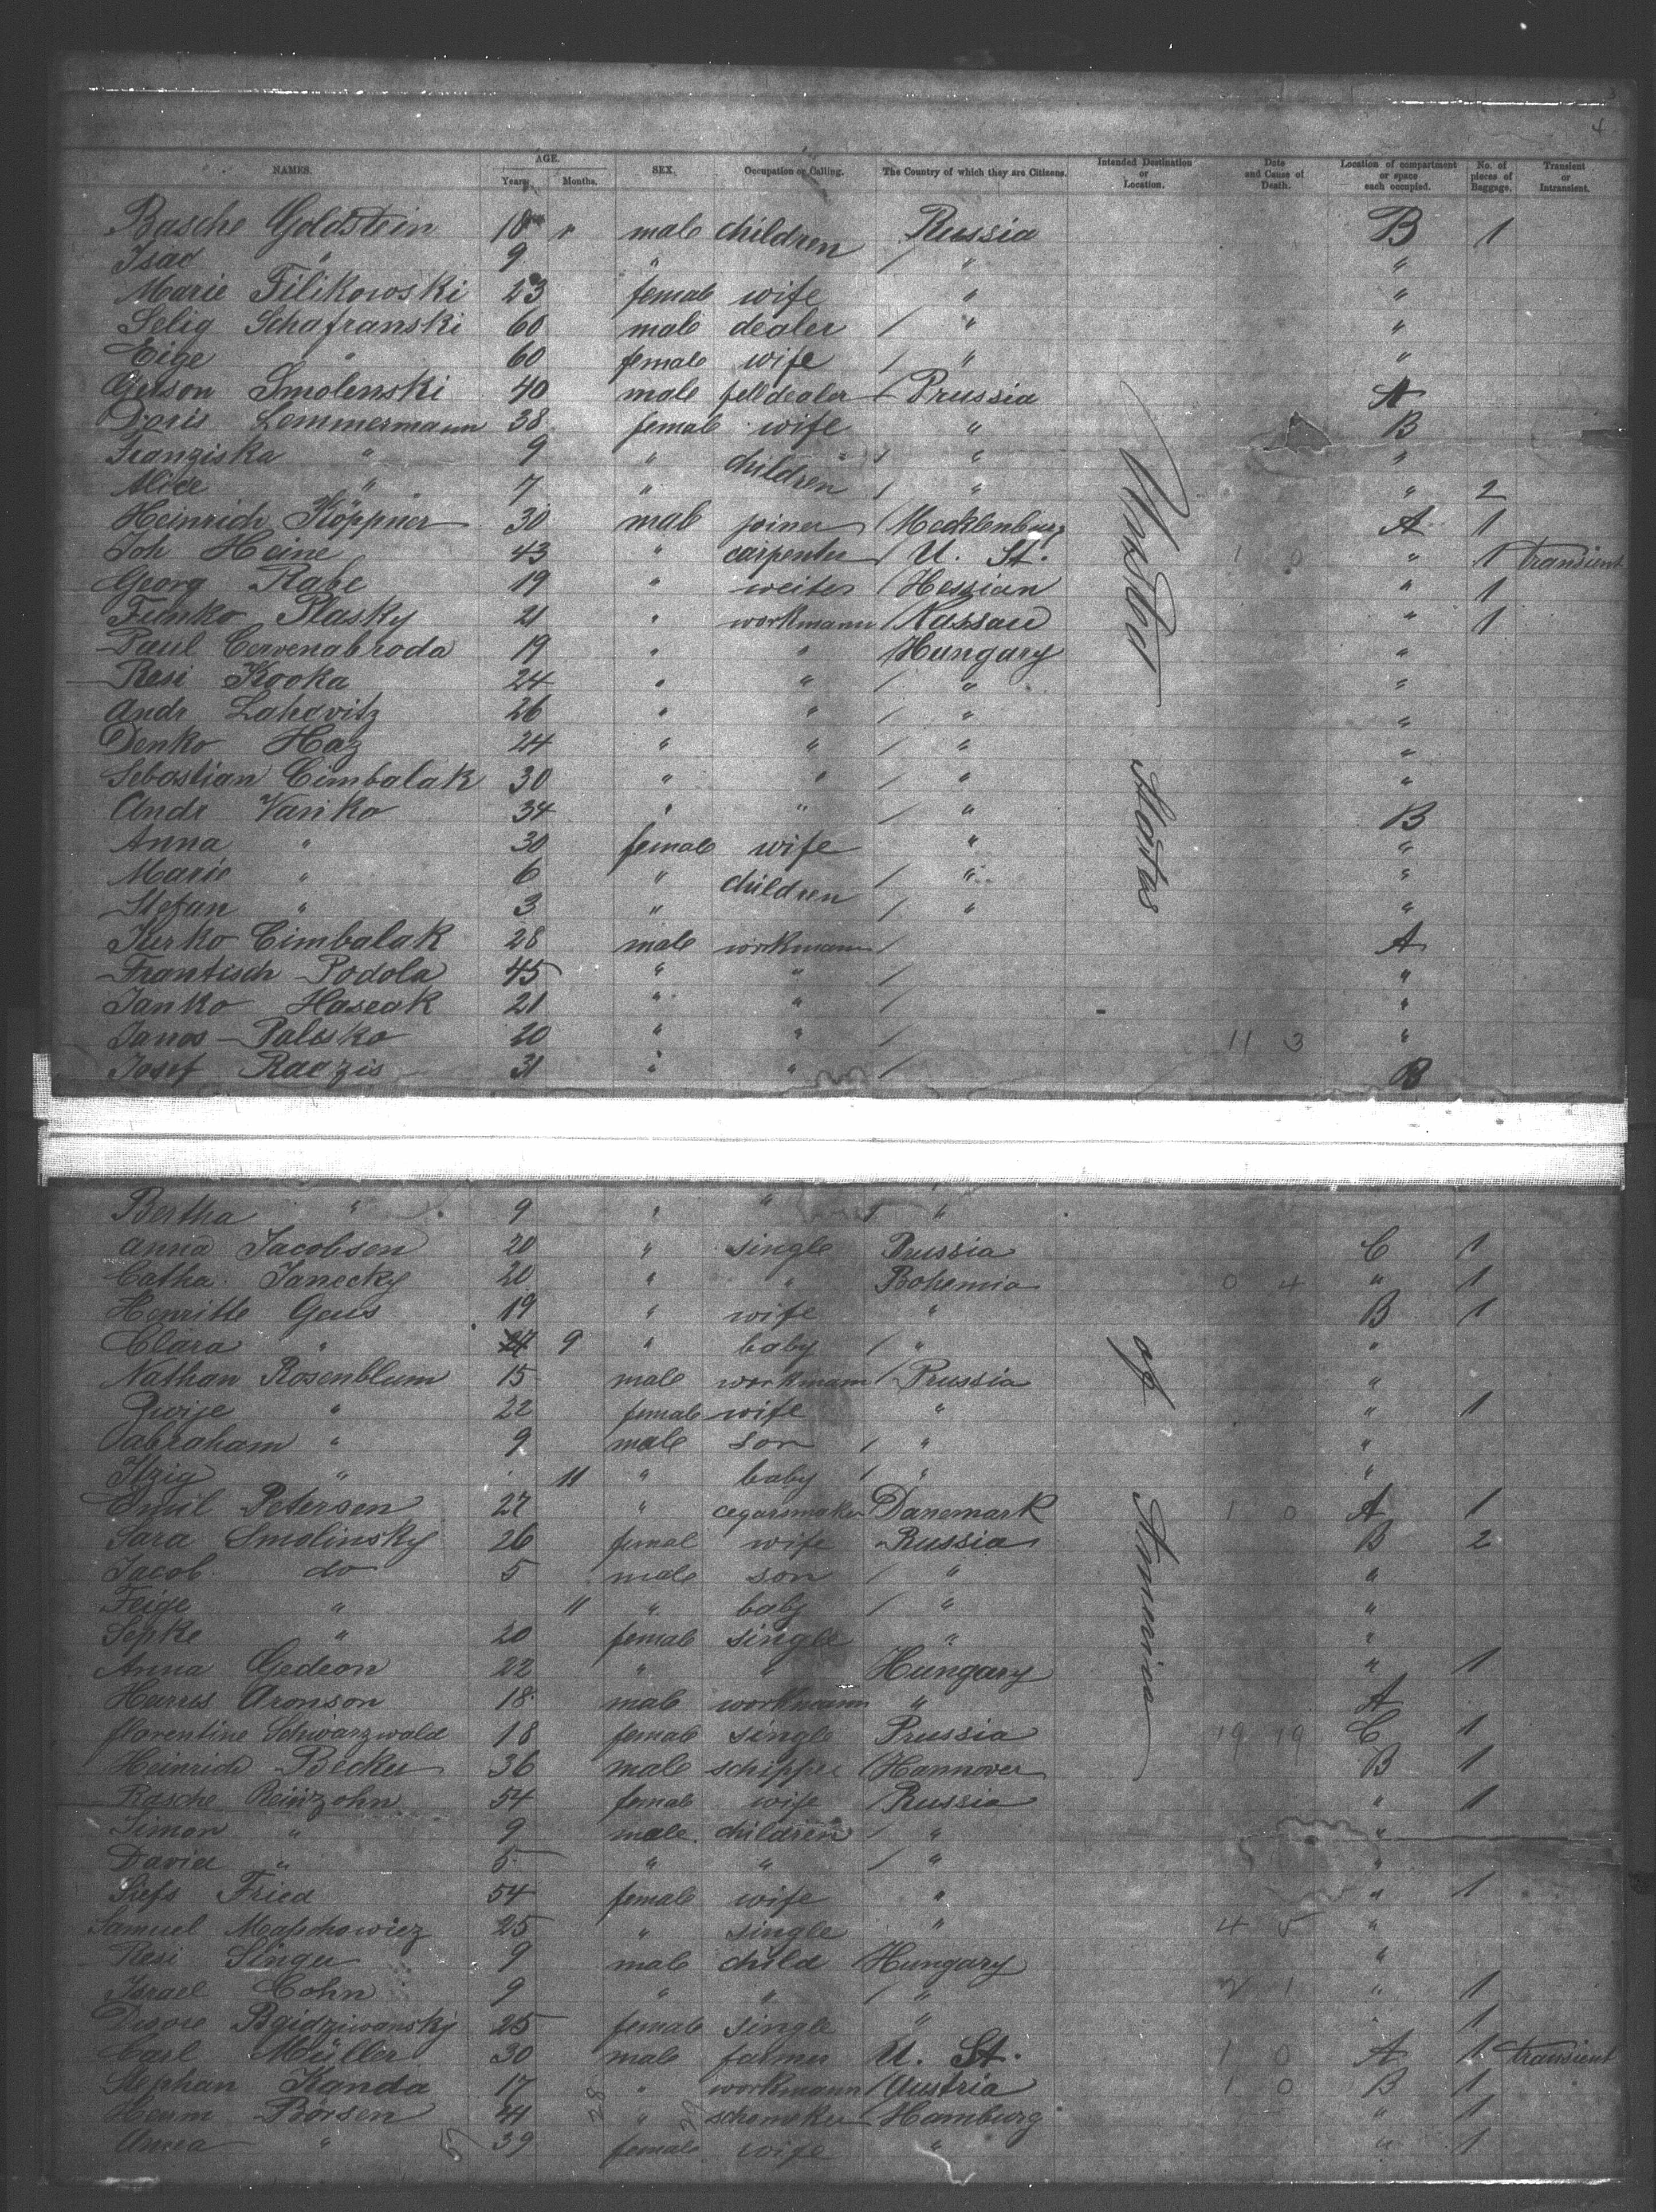 4
NAMES. AGE. Years. Months. SEX. Occupation or Calling. The Country of which they are Citizens. Intended Destination or Location. Date and Cause of Death. Location of compartment or space each occupied. No. of pieces of Baggage. Transient or Intransient.
Basche Goldstein 10 male children Russia B 1
Isac " 9 " / " "
Marie Filikowski 23 female wife " "
Selig Schafranski 60 male dealer / " "
Eige " 60 female wife / " "
Gerson Smolenski 40 male felldealer / Prussia A
Doris Lemmermann 38 female wife " B
Franziska " 9 " children " "
Alice " 7 " / " " 2
Heinrich Köppner 30 male joiner / Mecklenburg A 1
Joh Heine 43 " carpenter / U. St. 1 0 " 1 transient
Georg Rabe 19 " weiter / Hessian " 1
Funko Plasky 21 " workmann / Nassau " 1
Paul Cervenabroda 19 " " / Hungary "
Resi Kooka 24 " " / " "
Andr Lahovitz 26 " " / " "
Denko Haz 24 " " / " "
Sebastian Cimbalak 30 " " / " "
Andr Vanko 34 " " / " B
Anna " 30 female wife " "
Marie " 6 " children / " "
Stefan " 3 " / " "
Jurko Cimbalak 28 male workmann / A
Frantisch Podola 45 " " / "
Janko Haseak 21 " " / "
Janos Palesko 20 " " / 11 3 "
Josef Radzis 31 " " / B
United States
Bertha " 9 " " / "
Anna Jacobsen 20 " single Prussia C 1
Catha. Janecky 20 " " Bohemia 0 4 " 1
Henritte Geus 19 " wife " B 1
Clara " 9 " baby / " "
Nathan Rosenblum 15 male workmann / Prussia "
Zwije " 22 female wife " " 1
Abraham " 9 male son / " "
Itzig " 11 " baby / " "
Emil Petersen 27 " cegarsmaker Danemark 1 0 A 1
Sara Smolinsky 26 femal wife Russia B 2
Jacob do 5 male son / " "
Feige " 11 " baby / " "
Sepke " 20 female single " "
Anna Gedeon 22 " " Hungary " 1
Harris Aronson 18 male workmann " A
florentine Schwarzwald 18 female single Prussia 19 19 C 1
Heinrich Becker 36 male schipper / Hannover B 1
Rasche Reinzohn 54 female wife Russia " 1
Simon " 9 male children / " "
David " 5 " " / " "
Siefs Fried 54 female wife " " 1
Samuel Maschowiez 25 " single " 4 5 "
Resi Singer 9 male child Hungary "
Israel Cohn 9 " " / " 2 1 " 1
Dwore Bgidziwansky 25 female single " 1
Carl Müller 30 male farmer U. St. 1 0 A 1 transient
Stephan Kanda 17 " workmann / Austria 1 0 B 1
Herm Börsen 44 " schomeker / Hamburg " 1
Anna " 39 female wife " " 1
of Ammerica